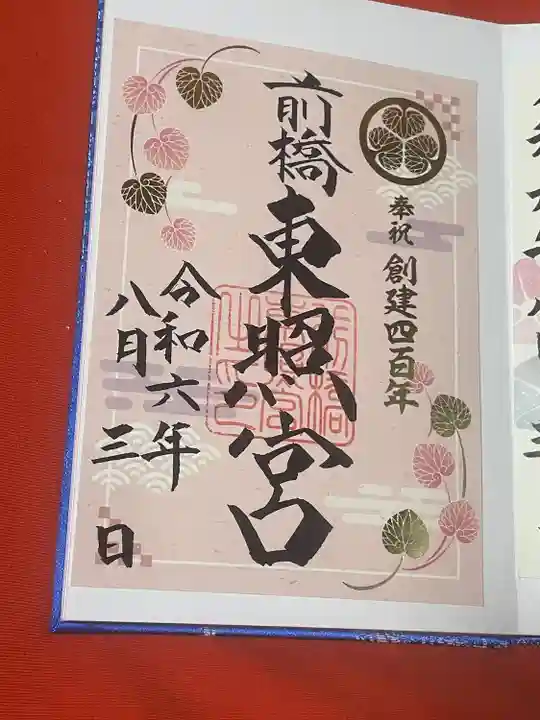 奉祝 創建四百年
前橋
東照宮
令和六年
八月三日